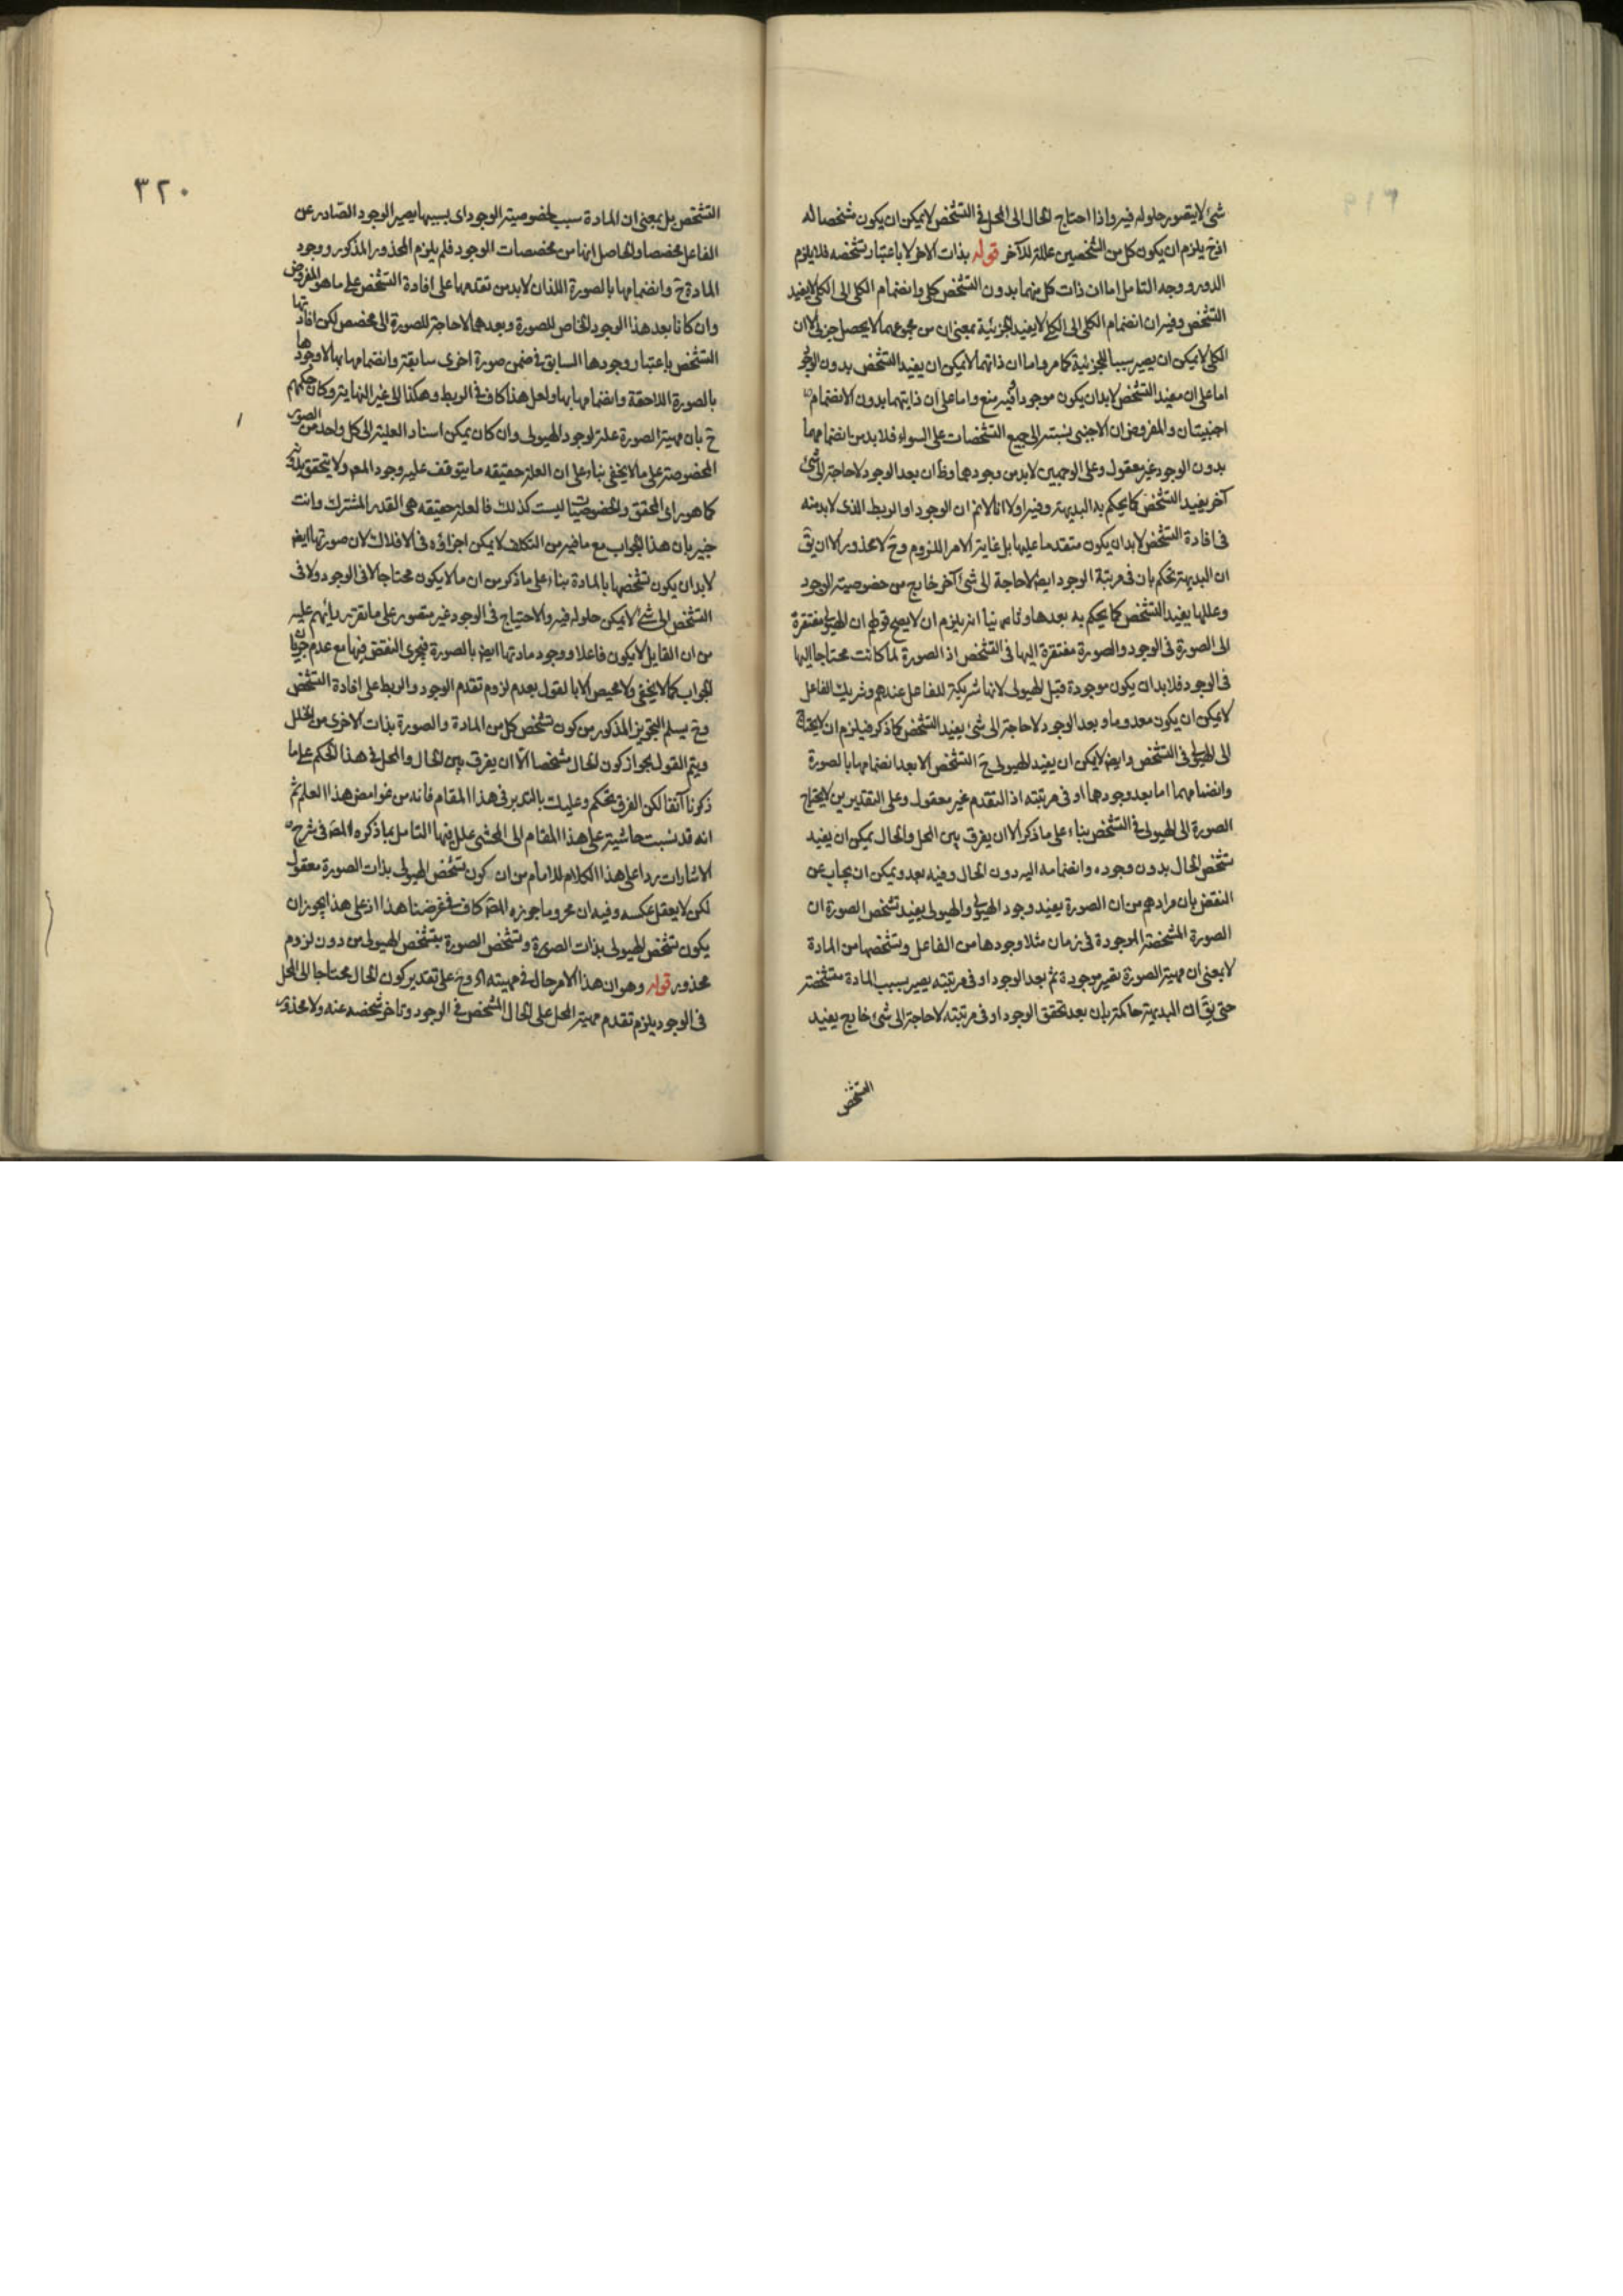 شئ لا يتصور حلوله فيه واذا احتاج الحال الى المحل فى التشخص لا يمكن ان يكون مشخصا له
اذ ح يلزم ان يكون كل من الشخصين علة للآخر قوله بذات الاخر لا باعتبار تشخصه فلا يلزم
الدور ووجه التامل اما ان ذات كل منهما بدون التشخص كلى وانضمام الكلى الى الكلى لا يفيد
التشخص وفيه ان انضمام الكلى الى الكلى لا يفيد الجزئية بمعنى ان من مجموعهما لا يحصل جزئى لا ان
الكلى لا يمكن ان يصير سببا للجزئية كما مر واما ان ذاتهما لا يمكن ان يفيد التشخص بدون الوجود
اما على ان مفيد التشخص لا بد ان يكون موجودا فيه منع واما على ان ذاتيهما بدون الانضمام
اجنبيتان والمفروض ان الاجنبى نسبته الى جميع التشخصات على السواء فلا بد من انضمامهما
بدون الوجود غير معقول وعلى الوجهين لا بد من وجودهما وظ ان بعد الوجود لا حاجة الى شئ
آخر يفيد التشخص كما يحكم به البديهة وفيه اولا انا لا نم ان الوجود او الربط الذى لا بد منه
فى افادة التشخص لا بد ان يكون متقدما عليها بل غاية الامر اللزوم وح لا محذور الا ان يق
ان البديهة تحكم بان فى مرتبة الوجود ايض لا حاجة الى شئ آخر خارج من خصوصية الوجود
وعللها يفيد التشخص كما يحكم به بعدها وثانيا انه يلزم ان لا يصح قولهم ان الهيولى مفتقرة
الى الصورة فى الوجود والصورة مفتقرة اليها فى التشخص اذ الصورة لما كانت محتاجا اليها
فى الوجود فلا بد ان يكون موجودة قبل الهيولى لانها شريكة للفاعل عندهم وشريك الفاعل
لا يمكن ان يكون معدوما وبعد الوجود لا حاجة الى شئ يفيد التشخص كما ذكر فيلزم ان لا يحتاج
الى الهيولى فى التشخص وايض لا يمكن ان يفيد الهيولى ح التشخص الا بعد انضمامها بالصورة
وانضمامهما اما بعد وجودهما او فى مرتبته اذ التقدم غير معقول وعلى التقديرين لا يحتاج
الصورة الى الهيولى فى التشخص بناء على ما ذكر الا ان يفرق بين المحل والحال يمكن ان يفيد
تشخص الحال بدون وجوده وانضمامه اليه دون الحال وفيه بعد ويمكن ان يجاب عن
النقض بان مرادهم من ان الصورة يفيد وجود الهيولى والهيولى يفيد تشخص الصورة ان
الصورة المشخصة الموجودة فى زمان مثلا وجودها من الفاعل وتشخصها من المادة
لا بمعنى ان مهية الصورة يصير موجودة ثم بعد الوجود او فى مرتبته يصير بسبب المادة متشخصة
حتى يق ان البديهة حاكمة بان بعد تحقق الوجود او فى مرتبته لا حاجة الى شئ خارج يفيد
التشخص
٣٢٠
التشخص بل بمعنى ان المادة سبب لخصوصية الوجود اى بسببها يصير الوجود الصادر عن
الفاعل مخصصا والحاصل انها من مخصصات الوجود فلم يلزم المحذور المذكور ووجود
المادة ح وانضمامها بالصورة اللذان لا بد من تقدمها على افادة التشخص على ما هو المفروض
وان كانا بعد هذا الوجود الخاص للصورة وبعدهما لا حاجة للصورة الى مخصص لكن افادتها
التشخص باعتبار وجودها السابق فى ضمن صورة اخرى سابقة وانضمامها بها لا وجودها
بالصورة اللاحقة وانضمامها بها ولعل هذا كاف فى الربط وهكذا الى غير النهاية وكان حكمهم
ح بان مهية الصورة علة لوجود الهيولى وان كان يمكن اسناد العلية الى كل واحد من الصور
المخصوصة على ما لا يخفى بناء على ان العلة حقيقه ما يتوقف عليه وجود المعم ولا يتحقق بدونه
كما هو راى المحقق والخصوصيات ليست كذلك فالعلة حقيقه هى القدر المشترك وانت
خبير بان هذا الجواب مع ما فيه من التكلف لا يمكن اجراؤه فى الافلاك لان صورتها ايض
لا بد ان يكون تشخصها بالمادة بناء على ما ذكر من ان ما لا يكون محتاجا لا فى الوجود ولا فى
التشخص الى شئ لا يمكن حلوله فيه والاحتياج فى الوجود غير متصور على ما تقرر رايهم عليه
من ان القابل لا يكون فاعلا ووجود مادتها ايض بالصورة فيجرى النقض فيها مع عدم جريان
الجواب كما لا يخفى ولا محيص الا بالقول بعدم لزوم تقدم الوجود والربط على افادة التشخص
وح يسلم التجويز المذكور من كون تشخص كل من المادة والصورة بذات الاخرى من الخلل
ويتم القول بجواز كون الحال مشخصا الا ان يفرق بين الحال والمحل فى هذا الحكم على ما
ذكرنا آنفا لكن الفرق تحكم وعليك بالتدبر فى هذا المقام فانه من غوامض هذا العلم ثم
انه قد نسبت حاشية على هذا المقام الى المحشى علل فيها التامل بما ذكره المص فى شرح
الاشارات ردا على هذا الكلام للامام من ان كون تشخص الهيولى بذات الصورة معقول
لكن لا يعقل عكسه وفيه ان محر وما جوزه المص كاف فى غرضنا هذا اذ على هذا يجوز ان
يكون تشخص الهيولى بذات الصورة وتشخص الصورة بتشخص الهيولى من دون لزوم
محذور قوله وهو ان هذا الامر حال فى مهيته اه وح على تقدير كون الحال محتاجا الى المحل
فى الوجود يلزم تقدم مهية المحل على الحال المشخص فى الوجود وتاخر تشخصه عنه ولا محذور